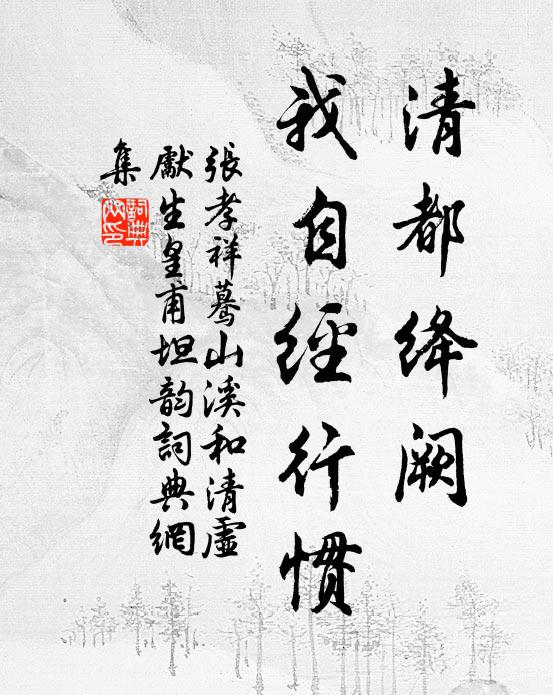 清都绛阙
我自經行慣
張孝祥驀山溪和清虛
獻生皇甫坦韵詞典網
集
詞典網印